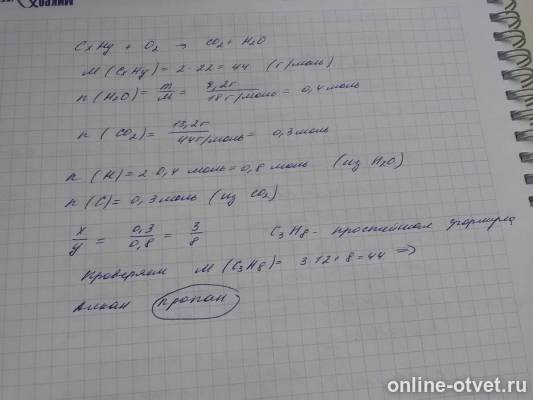 CxHy + O2 → CO2 + H2O
M (CxHy) = 2·22 = 44 (г/моль)
n (H2O) = m/M = 7,2г/18г/моль = 0,4 моль
n (CO2) = 13,2г/44г/моль = 0,3 моль
n (H) = 2·0,4 моль = 0,8 моль (из H2O)
n (C) = 0,3 моль (из CO2)
x/y = 0,3/0,8 = 3/8 C3H8 - простейшая формула
Проверяем M (C3H8) = 3·12+8 = 44 ⇒
Алкан пропан
online-otvet.ru